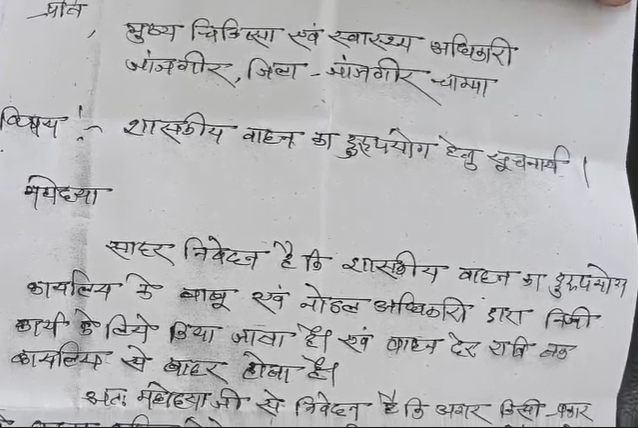 प्रति,
मुख्य चिकित्सा एवं स्वास्थ्य अधिकारी
जांजगीर, जिला - जांजगीर चाम्पा
विषय :- शासकीय वाहन का दुरूपयोग हेतु सूचनार्थ ।
महोदया
सादर निवेदन है कि शासकीय वाहन का दुरूपयोग
कार्यालय के बाबू एवं नोडल अधिकारी द्वारा निजी
कार्य के लिये किया जाता है। एवं वाहन देर रात्रि तक
कार्यालय से बाहर होता है।
अतः महोदया जी से निवेदन है कि अगर किसी प्रकार